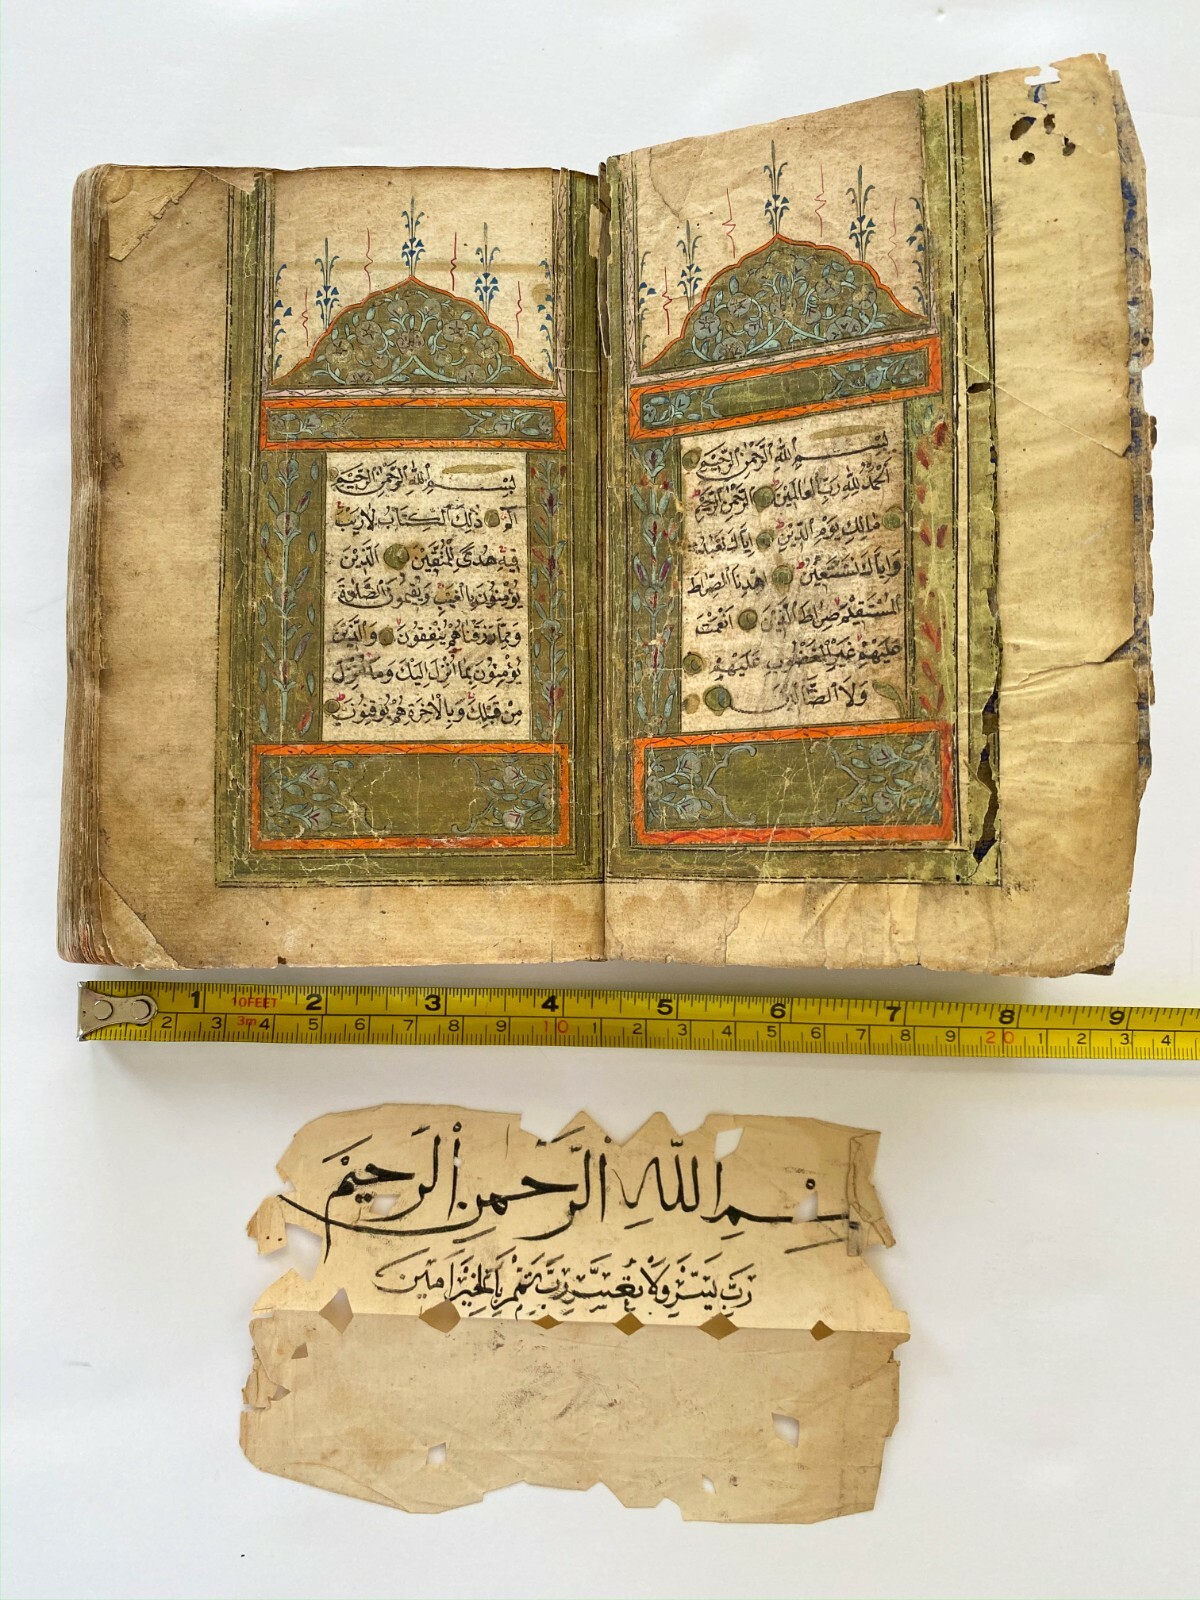 بِسْمِ اللهِ الرَّحْمٰنِ الرَّحِيمِ
اَلْحَمْدُ لِلّٰهِ رَبِّ الْعَالَمِينَ الرَّحْمٰنِ الرَّحِيمِ
مَالِكِ يَوْمِ الدِّينِ اِيَّاكَ نَعْبُدُ
وَاِيَّاكَ نَسْتَعِينُ اِهْدِنَا الصِّرَاطَ
الْمُسْتَقِيمَ صِرَاطَ الَّذِينَ اَنْعَمْتَ
عَلَيْهِمْ غَيْرِ الْمَغْضُوبِ عَلَيْهِمْ
وَلَا الضَّالِّينَ
بِسْمِ اللهِ الرَّحْمٰنِ الرَّحِيمِ
الم ذٰلِكَ الْكِتَابُ لَارَيْبَ
فِيهِ هُدًى لِلْمُتَّقِينَ الَّذِينَ
يُؤْمِنُونَ بِالْغَيْبِ وَيُقِيمُونَ الصَّلٰوةَ
وَمِمَّا رَزَقْنَاهُمْ يُنْفِقُونَ وَالَّذِينَ
يُؤْمِنُونَ بِمَا اُنْزِلَ اِلَيْكَ وَمَا اُنْزِلَ
مِنْ قَبْلِكَ وَبِالْاٰخِرَةِ هُمْ يُوقِنُونَ
1 10FEET 2 3 4 5 6 7 8 9
2 3 3m 4 5 6 7 8 9 10 1 2 3 4 5 6 7 8 9 20 1 2 3 4
بِسْمِ اللّٰهِ الرَّحْمٰنِ الرَّحِيمْ
رَبِّ يَسِّرْ وَلَا تُعَسِّرْ رَبِّ تَمِّمْ بِالْخَيْرْ اٰمِينْ